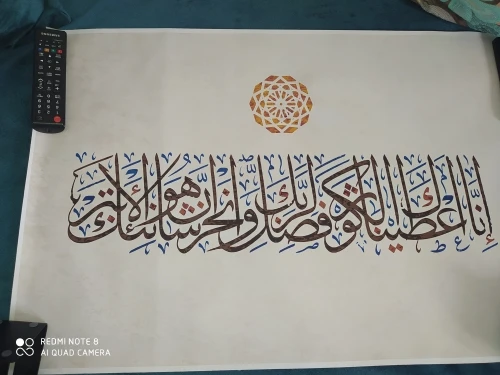 إِنَّا أَعْطَيْنَاكَ الْكَوْثَرَ فَصَلِّ لِرَبِّكَ وَانْحَرْ إِنَّ شَانِئَكَ هُوَ الْأَبْتَرُ
SAMSUNG
REDMI NOTE 8
AI QUAD CAMERA